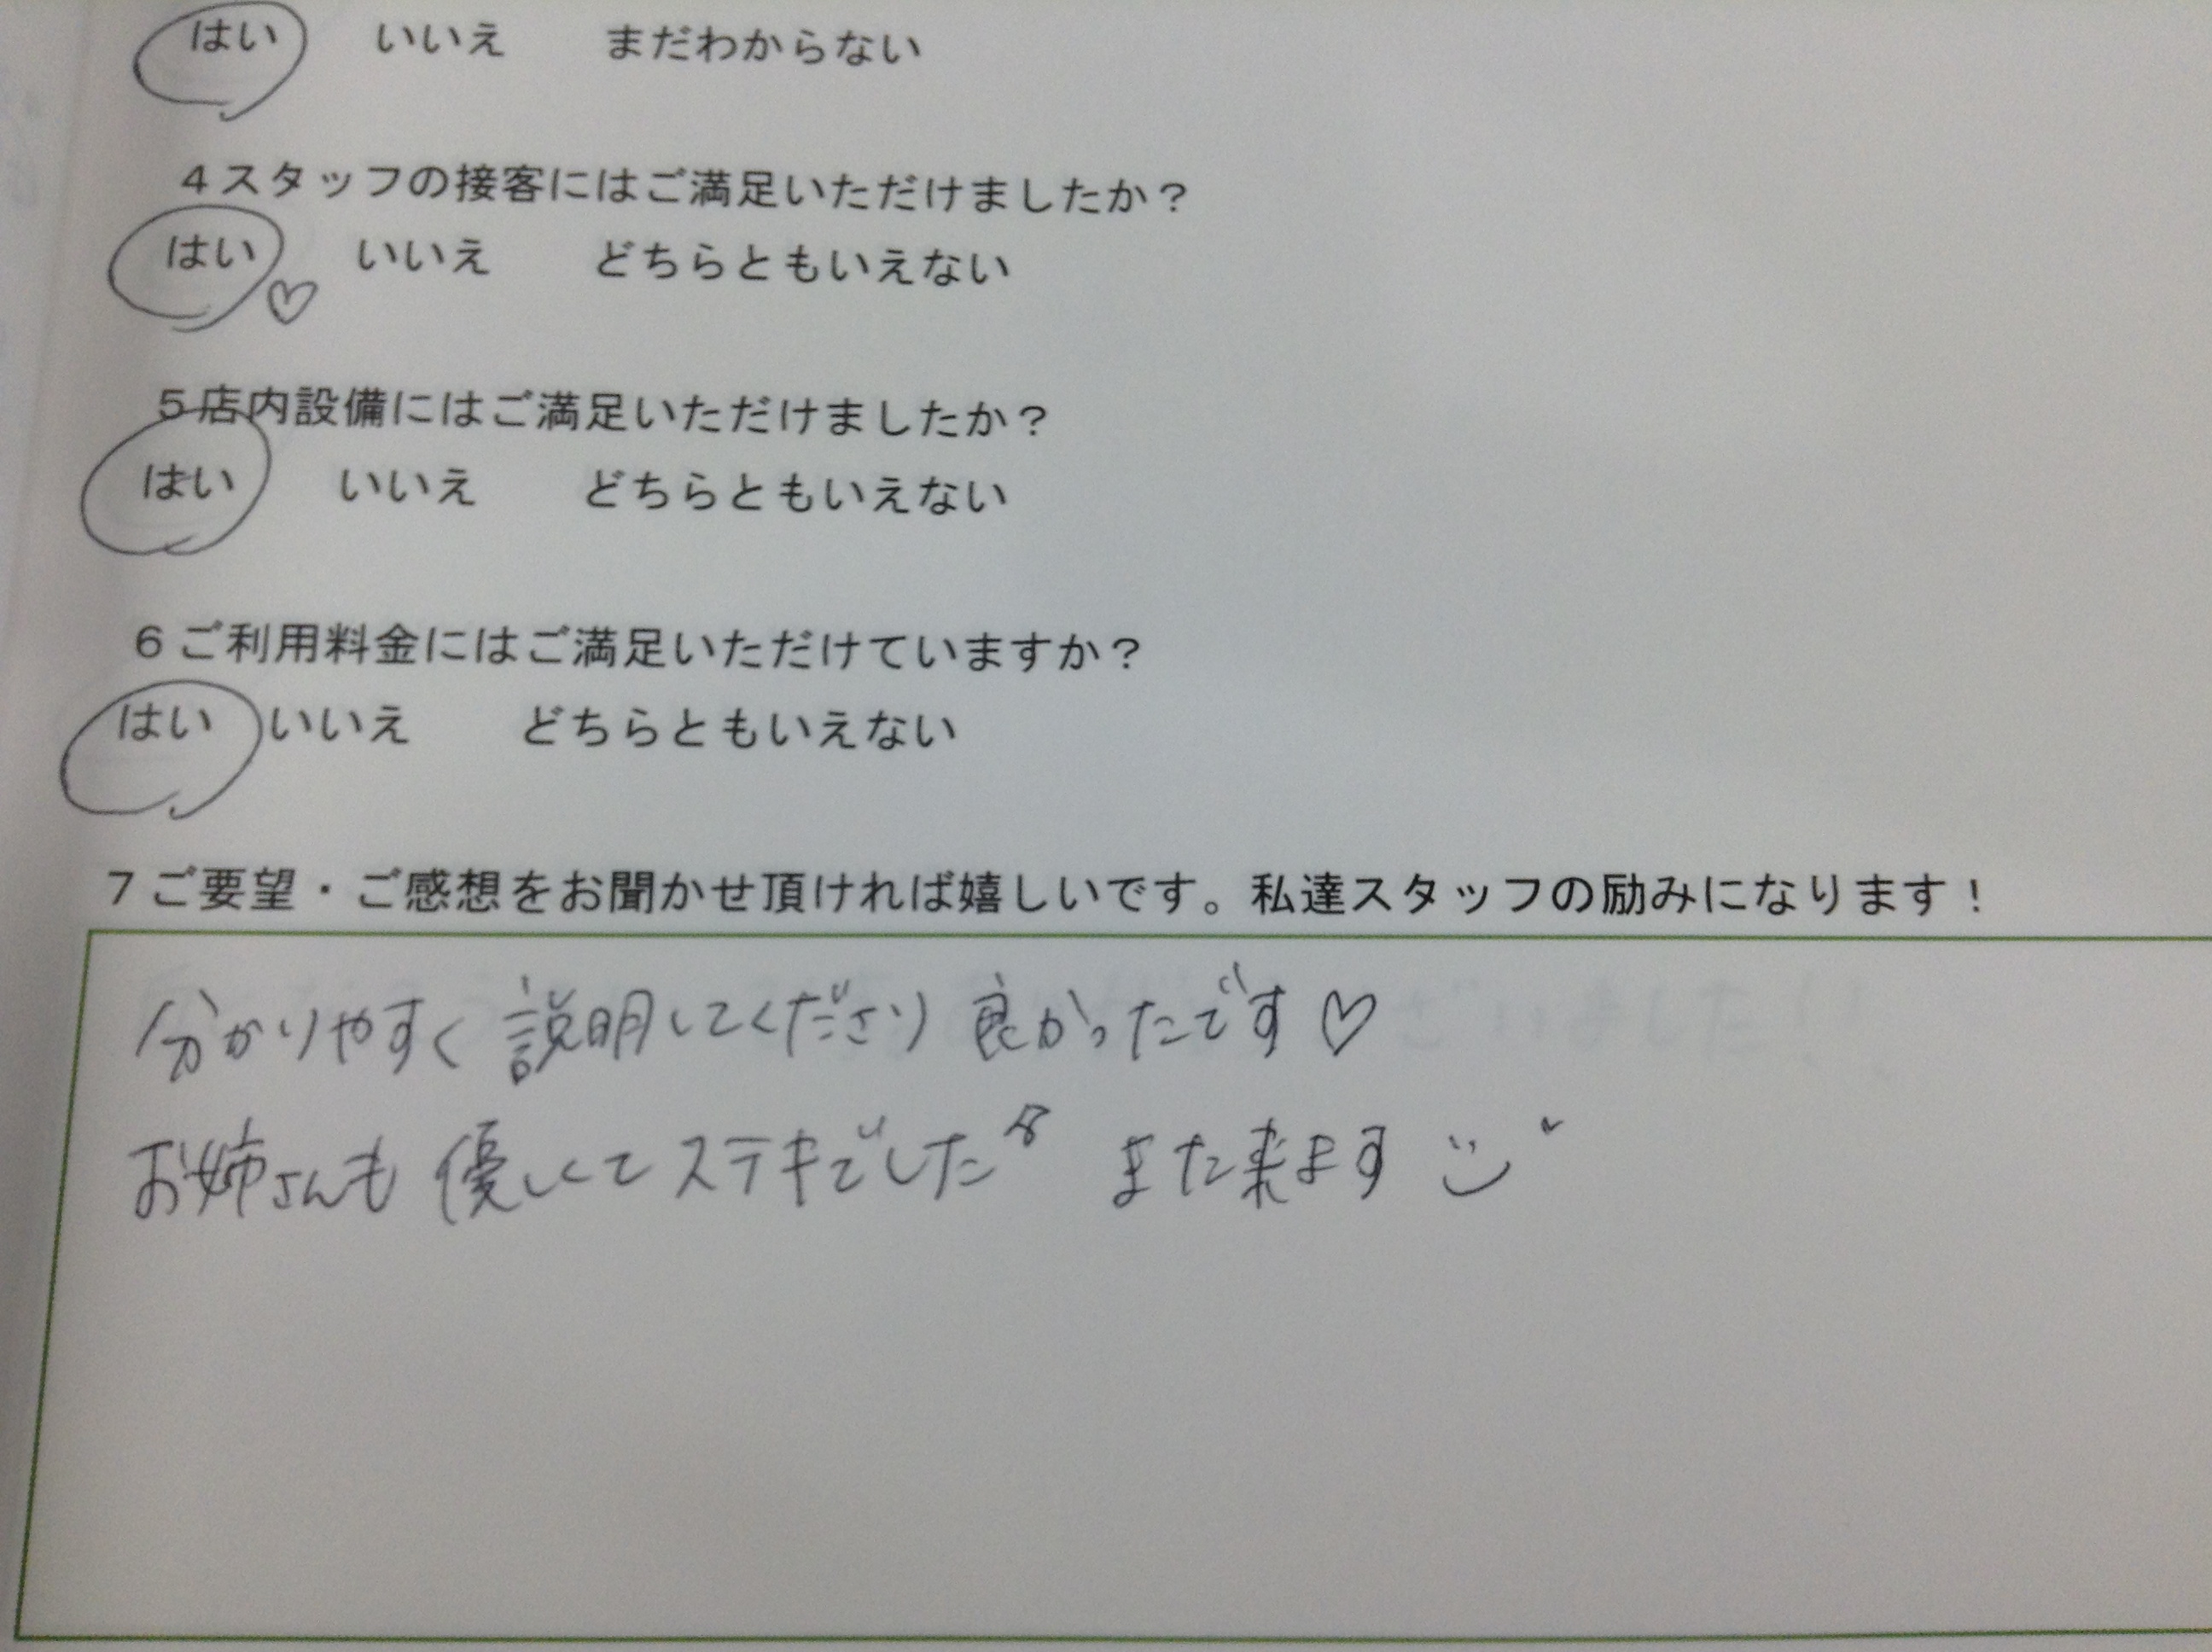 はい いいえ まだわからない
4スタッフの接客にはご満足いただけましたか？
はい♡ いいえ どちらともいえない
5店内設備にはご満足いただけましたか？
はい いいえ どちらともいえない
6ご利用料金にはご満足いただけていますか？
はい いいえ どちらともいえない
7ご要望・ご感想をお聞かせ頂ければ嬉しいです。私達スタッフの励みになります！
分かりやすく説明してくださり良かったです♡
お姉さんも優しくてステキでした また来ます